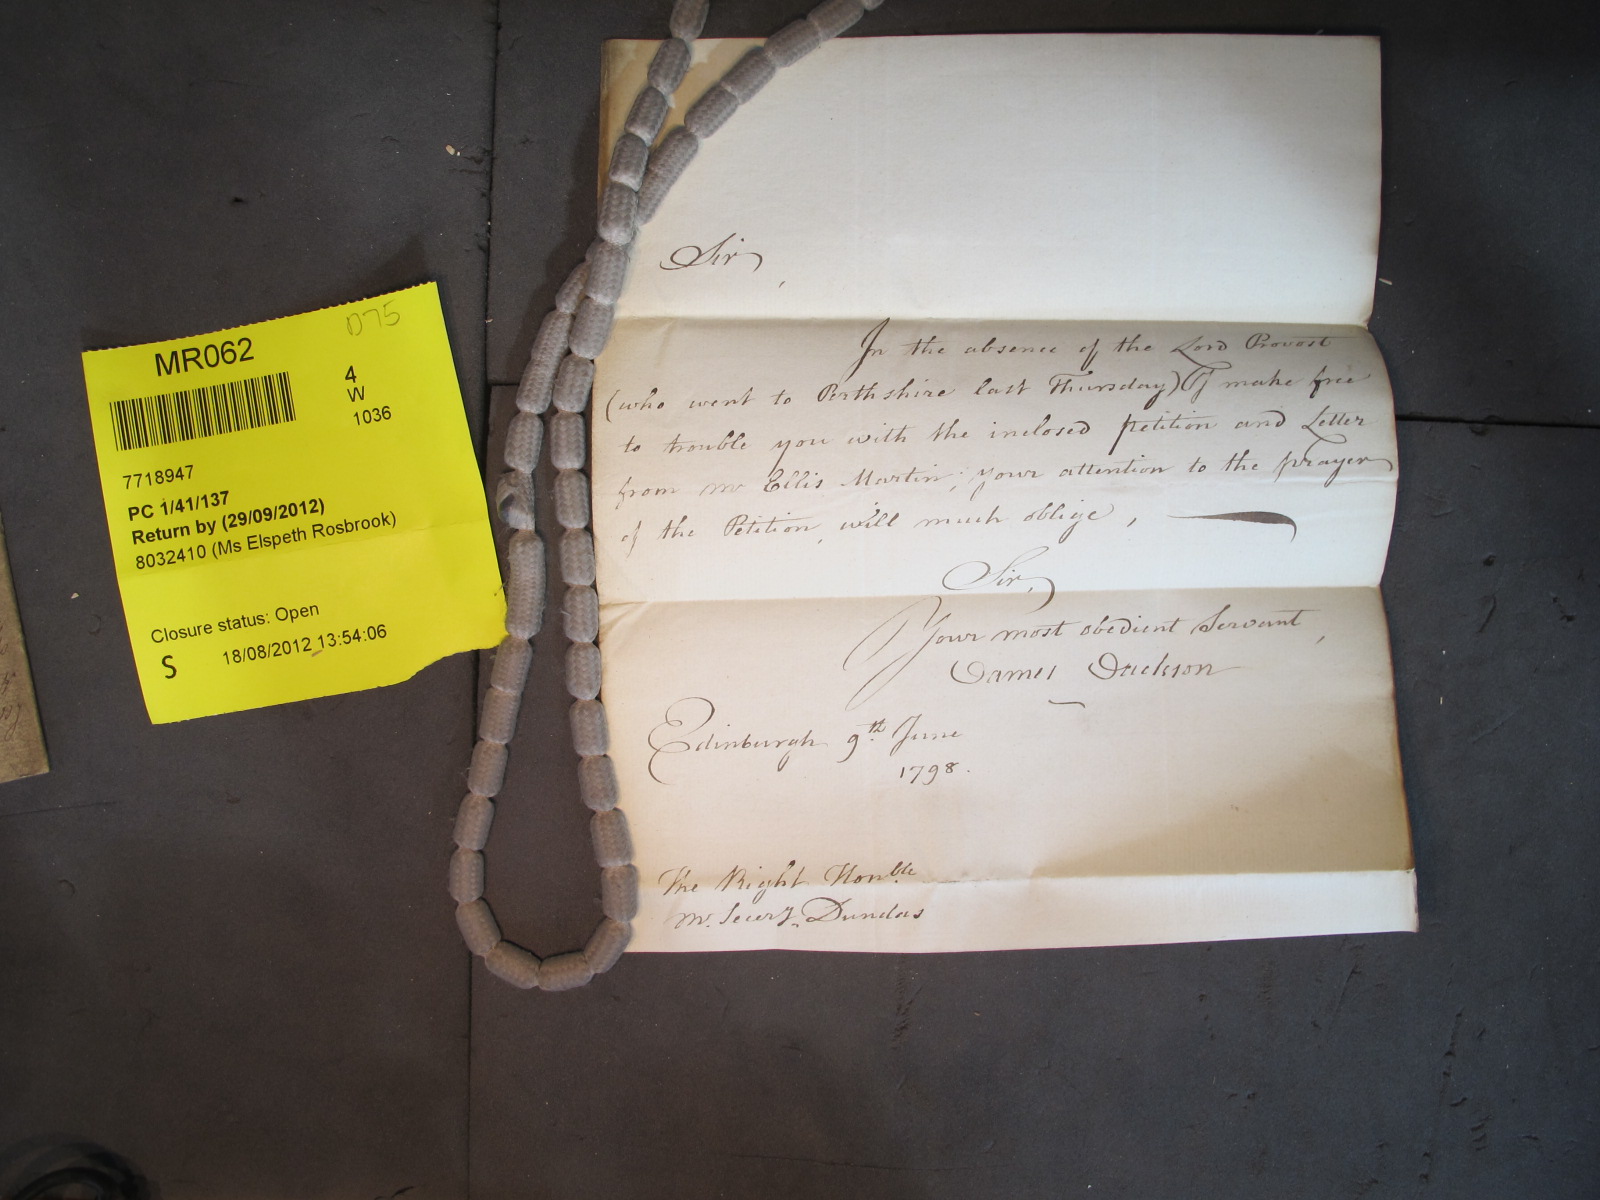 D75
MR062
4
W
1036
7718947
PC 1/41/137
Return by (29/09/2012)
8032410 (Ms Elspeth Rosbrook)
Closure status: Open
S 18/08/2012 13:54:06
Sir,
In the absence of the Lord Provost
(who went to Perthshire last Thursday) I make free
to trouble you with the inclosed petition and Letter
from Mr Ellis Martin; your attention to the prayer
of the Petition, will much oblige,
Sir,
Your most obedient Servant,
James Jackson
Edinburgh 9th June
1798.
The Right Honble
Mr. Secry. Dundas